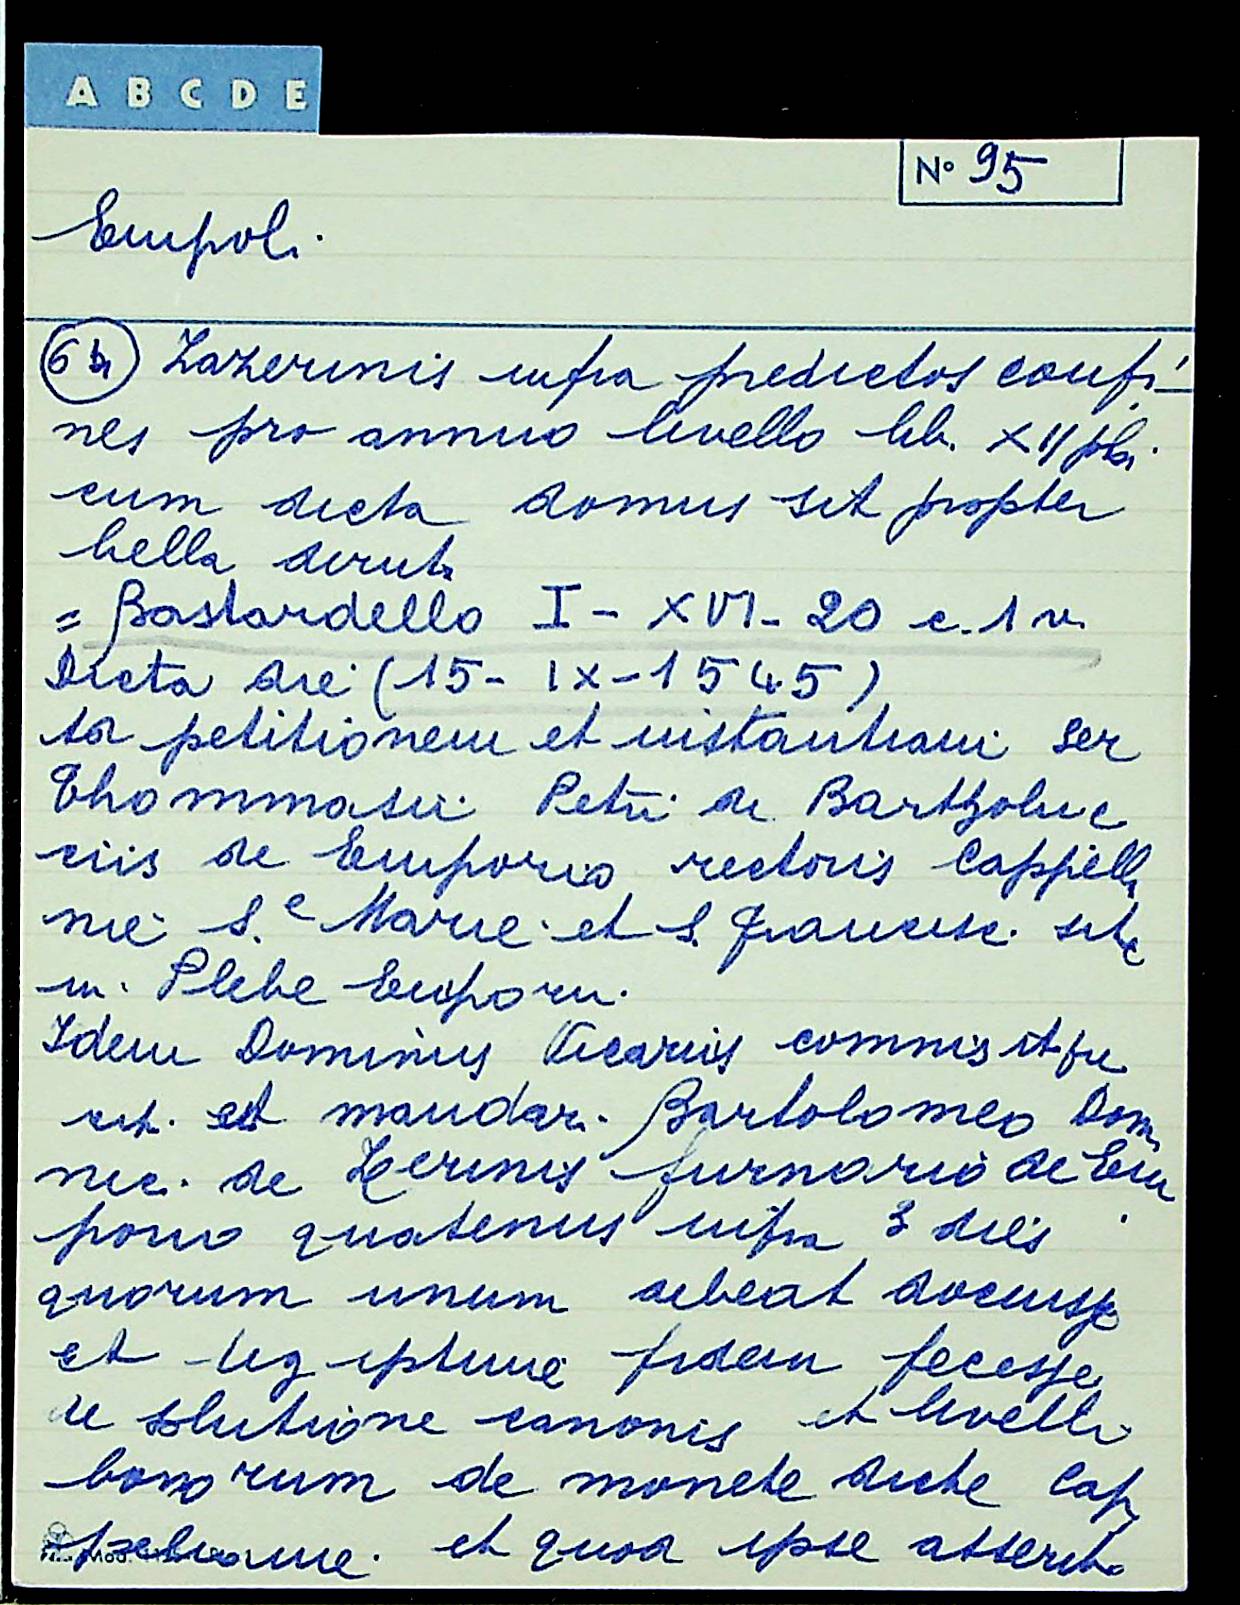 A B C D E
N° 95
Empoli
Lazerinis infra predictos confi-
nes pro annuo livello lib. XII
cum dicta domus sit propter
bella diruta
= Bastardello I - XVI - 20 c. 1 v.
Dicta die (15 - IX - 1545)
Ad petitionem et instantiam ser
Thommasii Petri de Bartholuc
ciis de Emporio rectoris Cappella
nie S.e Marie et S. Francisci site
in Plebe Empori.
Idem Dominus Vicarius commisit fe
cit. et mandav. Bartolomeo Dom
nic. de Zerinis furnario de Em
porio quatenus infra 3 dies
quorum unum debeat docuisse
et legiptime fidem fecesse
de solutione canonis et livelli
bonorum de monete dicte Cap
pellanie. et quod ipse asserit